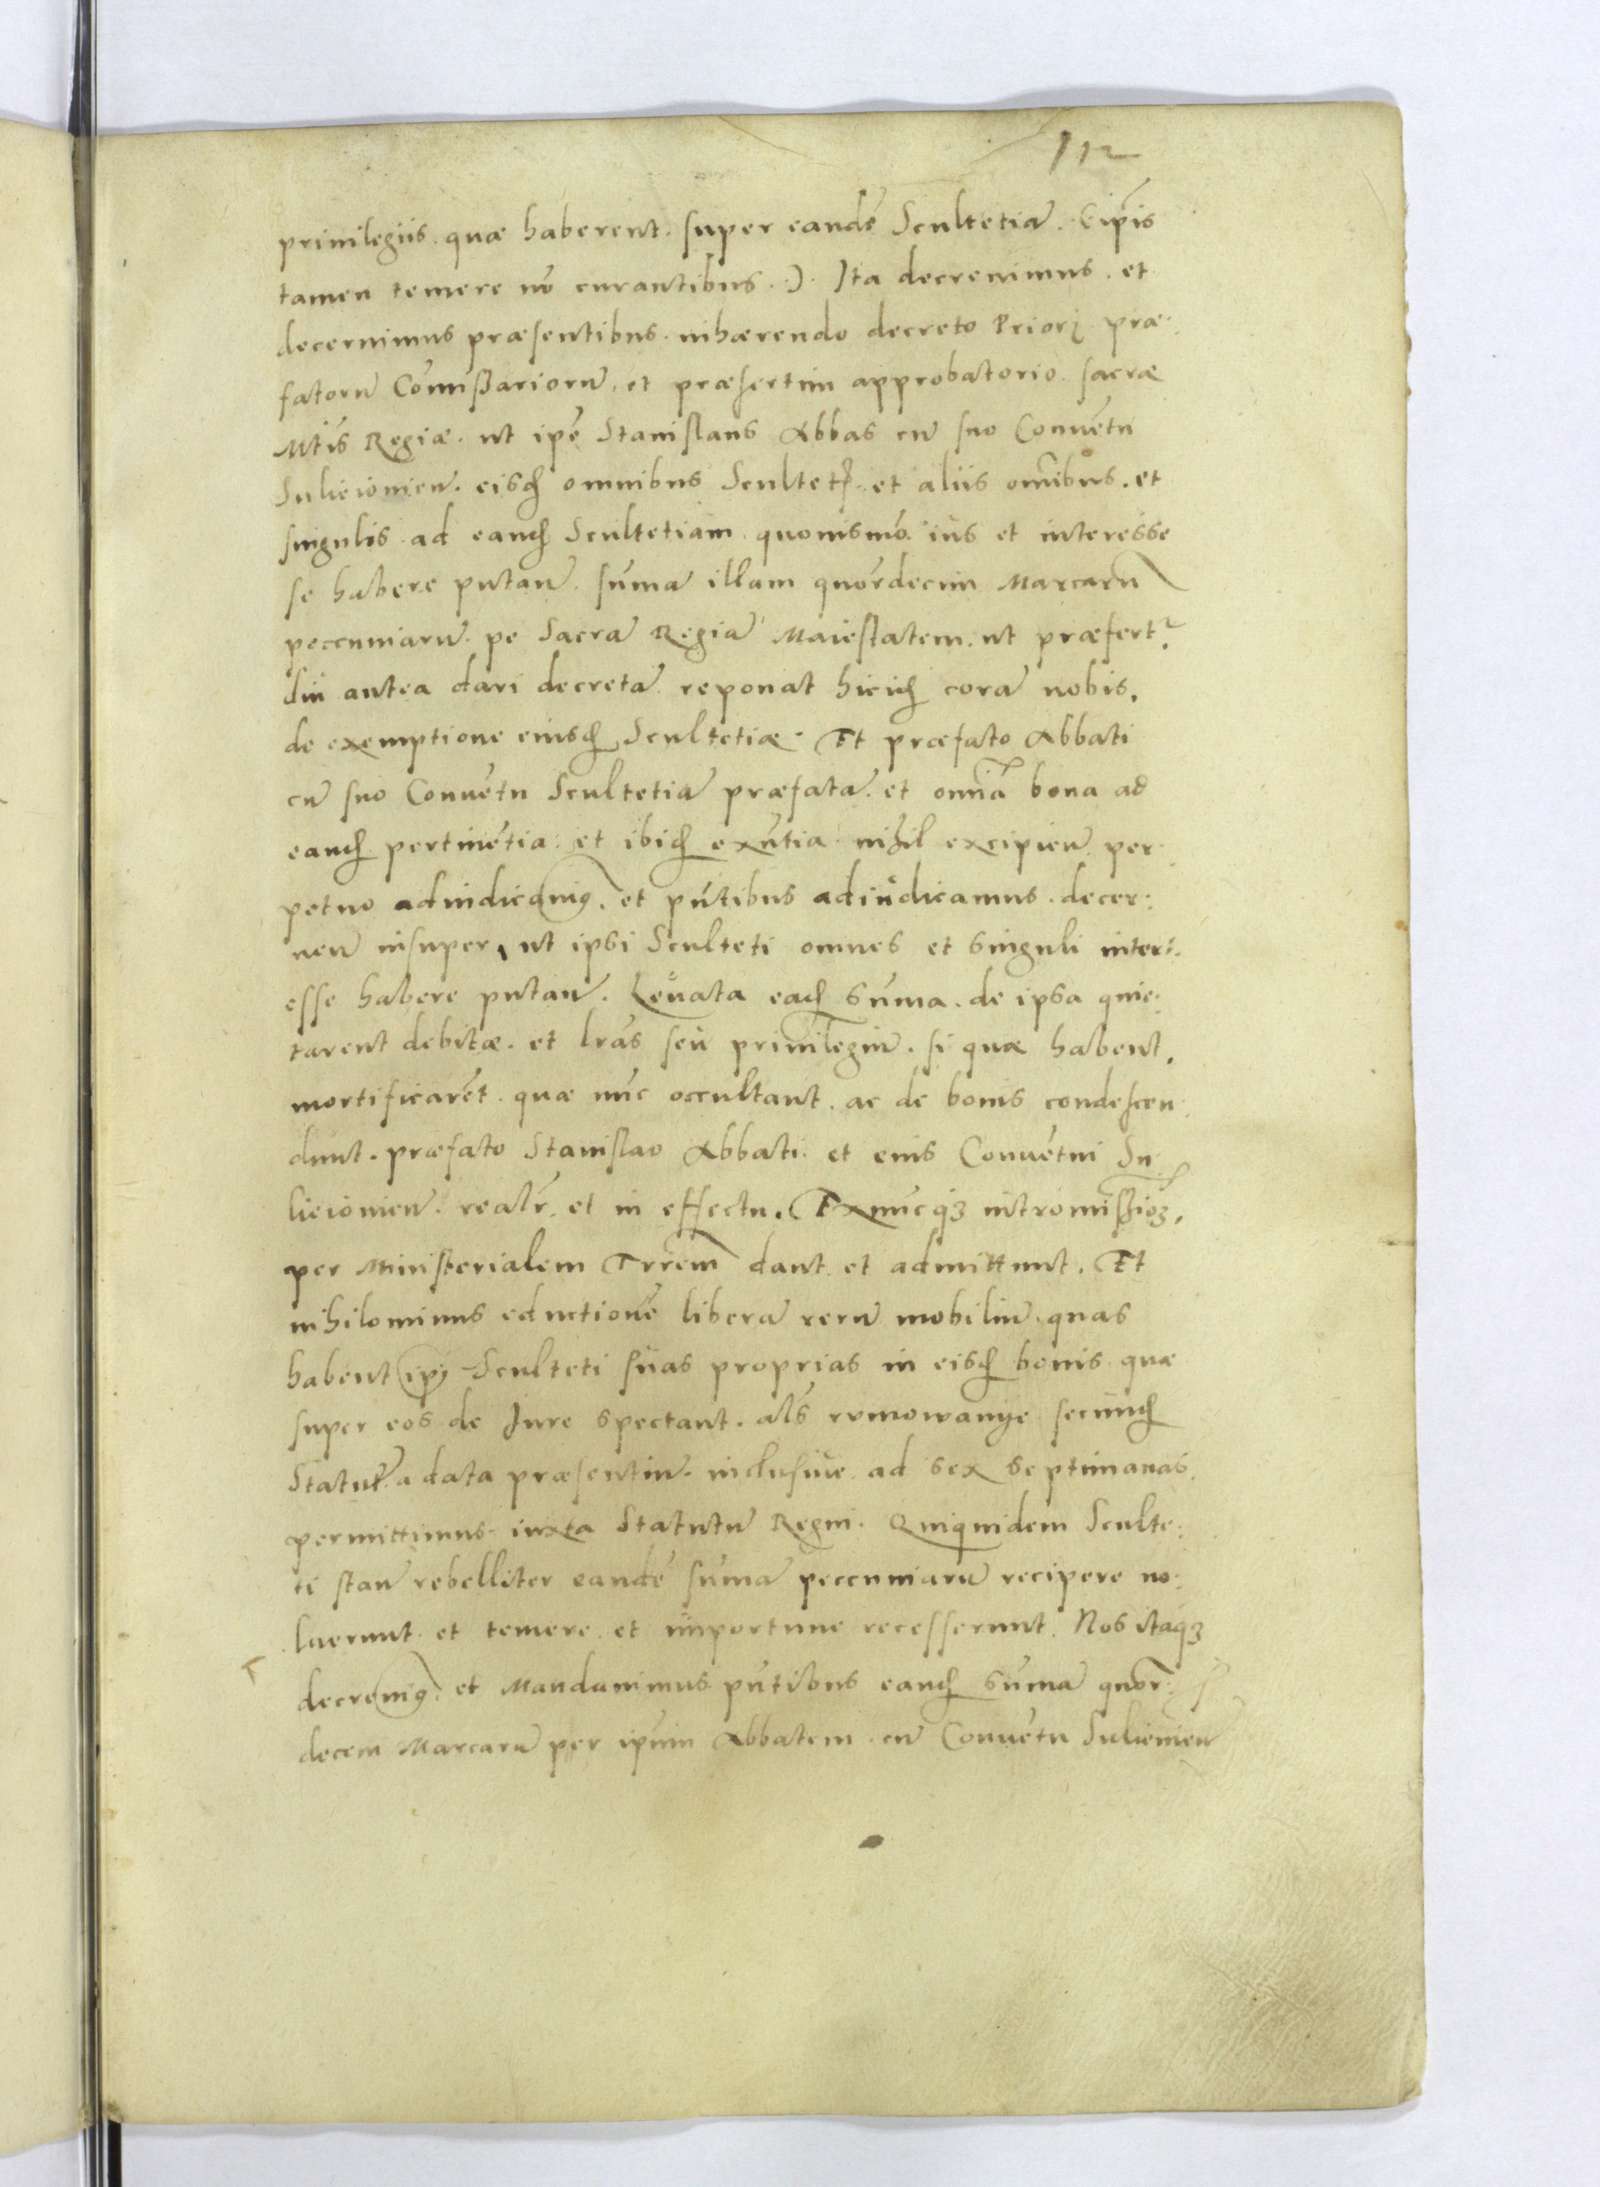 112
priuilegiis. quæ haberent. super eandē Scultetiā. (ip̄is
tamen temere nō curantibus.). Ita decreuimus. et
decernimus præsentibus. inhærendo decreto Prioꝝ. præ:
fatorū Com̄issariorū. et præsertim approbatorio. sacræ
Mtīs Regiæ. ut ip̄e Stanislaus Abbas cū suo Conuētu
Suleiouien̄. eisđ omnibus Scultet. et aliis om̄ibus. et
singulis. ad eanđ Scultetiam. quouismō. ius et interesse
se habere putan̄. sum̄ā illam quōrdecim Marcarū
peccuniarū. pe Sacrā Regiā Maiestatem. ut præfert͛
diu antea dari decretā. reponat hiciđ corā nobis.
de exemptione eiusđ Scultetiæ. Et præfato Abbati
cū suo Conuētu Scultetiā præfatā. et om̄ia bona ad
eanđ pertinētia. et ibiđ exn̄tia nihil excipien̄. per:
petuo adiudicauimꝰ. et pn̄tibus adiudicamus. decer:
nen̄ insuper, ut ipsi Sculteti omnes et singuli inter:
esse habere putan̄. Leuata eađ sum̄a. de ipsa quie:
tarent debitæ. et lrās seu priuilegiū. si quæ habent.
mortificarēt. quæ nūc occultant. ac de bonis condescen:
dunt. præfato Stanislao Abbati. et eius Conuētui Su:
lieiouien̄. realr̄. et in effectu. Exnūcqꝫ intromissioꝫ.
per Ministerialem Trrēm dant et admittunt. Et
nihilominus eductionē liberā rerū mobiliū. quas
habent ip̄i Sculteti suas proprias in eisđ bonis quæ
super eos de Iure spectant. als̄ rvmowanye secunđ
Statut. a data præsentiū. inclusiue ad sex septimanas
permittimus. iuxta Statutū Regni. Quiquidem Sculte:
ti stan̄ rebelliter eandē sum̄ā peccuniarū recipere no:
luerunt. et temere. et importune recesserunt. Nos itaqꝫ
decreuimꝰ. et Mandauimus pn̄tibus eanđ sum̄ā quōr:
decem Marcarū per ip̄um Abbatem. cū Conuētu Suleiouien̄